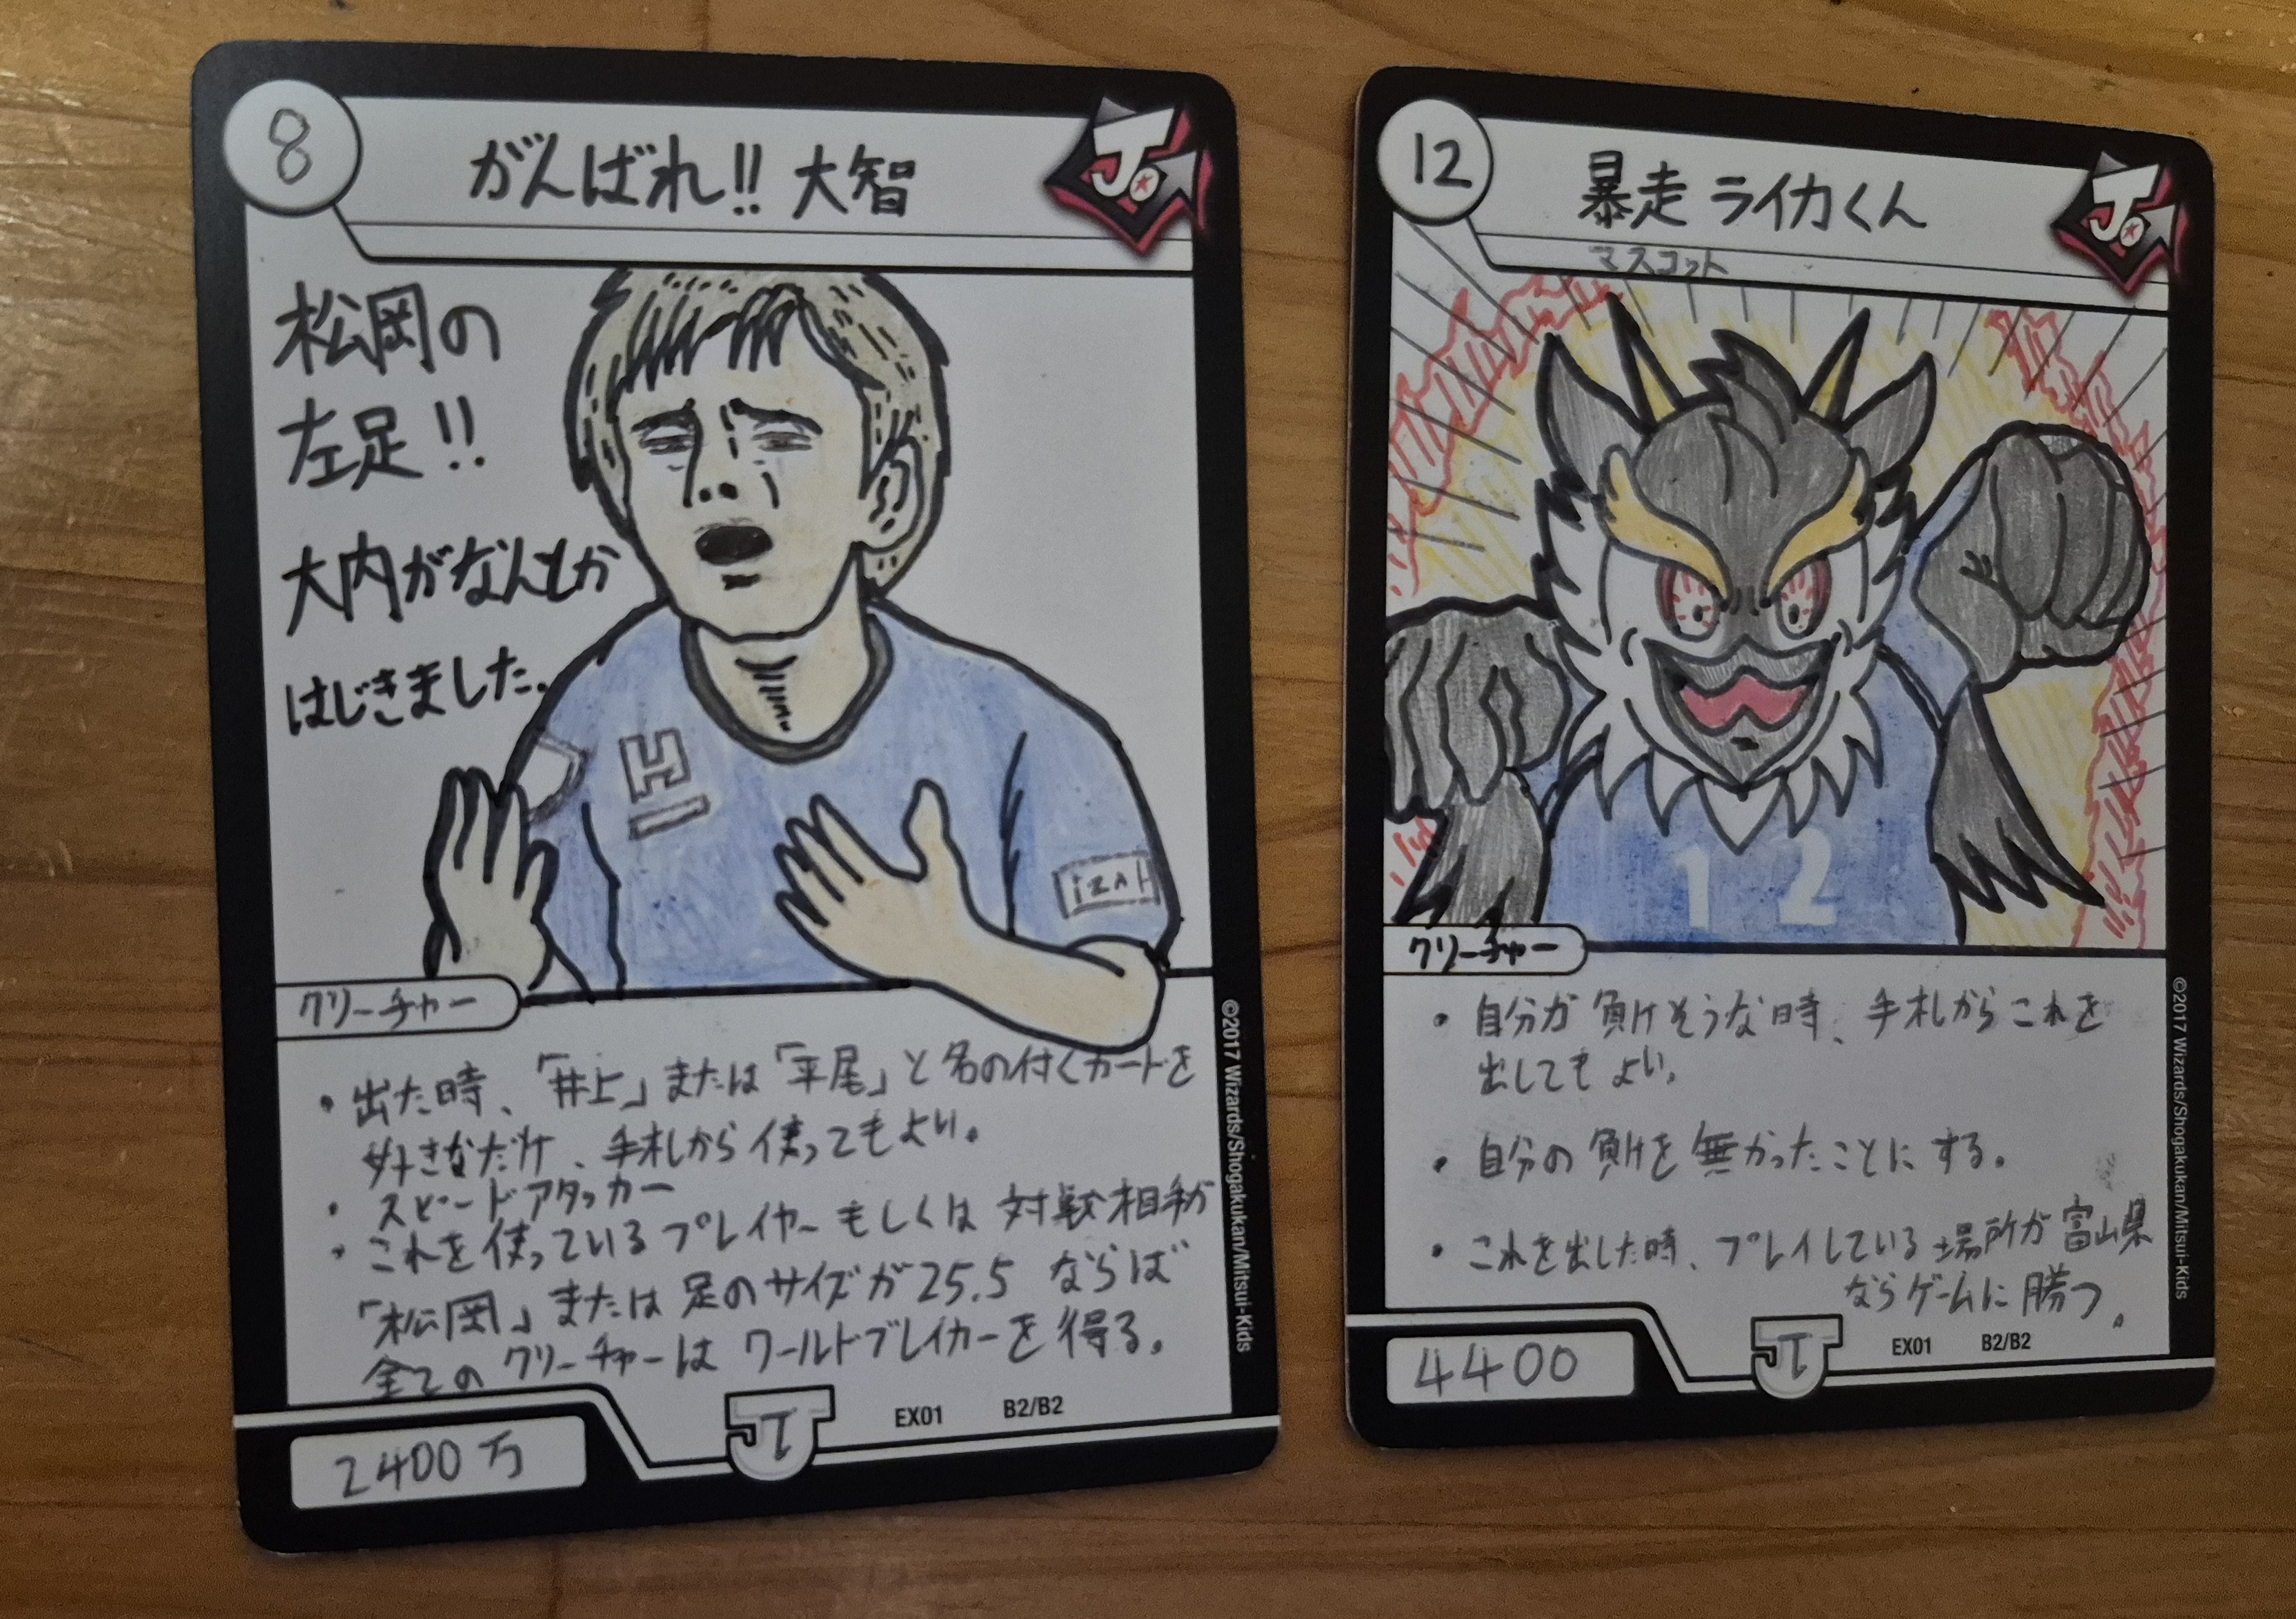 8
がんばれ!! 大智
J
松岡の
左足!!
大内がなんとか
はじきました.
H
iZAK
クリーチャー
・出た時、「井上」または「平尾」と名の付くカードを
好きなだけ、手札から使ってもよい。
・スピードアタッカー
・これを使っているプレイヤーもしくは対戦相手が
「松岡」または足のサイズが25.5ならば
全てのクリーチャーはワールドブレイカーを得る。
2400万
EX01 B2/B2
©2017 Wizards/Shogakukan/Mitsui-Kids
12
暴走 ライカくん
マスコット
J
12
クリーチャー
・自分が負けそうな時、手札からこれを
出してもよい。
・自分の負けを無かったことにする。
・これを出した時、プレイしている場所が富山県
ならゲームに勝つ。
4400
EX01 B2/B2
©2017 Wizards/Shogakukan/Mitsui-Kids